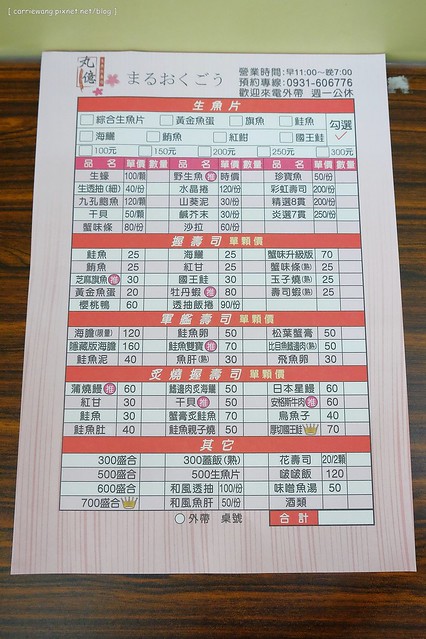 [ corriewang.pixnet.net/blog ]
丸億
まるおくごう
營業時間:早11:00~晚7:00
預約專線:0931-606776
歡迎來電外帶 週一公休
生魚片
綜合生魚片 黃金魚蛋 旗魚 鮭魚 勾選
海鱺 鮪魚 紅魽 國王鮭
100元 150元 200元 250元 300元
品名 單價 數量 品名 單價 數量 品名 單價 數量
生蠔 100/顆 野生魚 推 時價 珍寶魚 50/份
生透抽(細) 40/份 水晶捲 120/份 彩虹壽司 200/份
九孔鮑魚 120/顆 山葵泥 30/份 精選8貫 200/份
干貝 50/顆 鹹芥末 30/份 炎選7貫 250/份
蟹味條 80/份 沙拉 60/份
握壽司 單顆價
鮭魚 25 海鱺 25 蟹味升級版 70
鮪魚 25 紅甘 25 蟹味條(熟) 25
芝麻旗魚 推 30 國王鮭 30 玉子燒(熟) 25
黃金魚蛋 20 牡丹蝦 推 80 壽司蝦(熟) 25
櫻桃鴨 60 透抽飯捲 90/份
軍艦壽司 單顆價
海膽(限量) 120 鮭魚卵 50 松葉蟹膏 50
隱藏版海膽 160 鮭魚雙寶 推 70 比目魚鰭邊肉(熟) 50
鮭魚泥 40 魚肝(熟) 30 飛魚卵 30
炙燒握壽司 單顆價
蒲燒鰻 推 60 鰭邊肉炙海鱺 50 日本星鰻 60
紅甘 30 干貝 推 50 安格斯牛肉 推 60
鮭魚 30 蟹膏炙鮭魚 70 烏魚子 40
鮭魚肚 40 鮭魚親子燒 50 厚切國王鮭 70
其它
300盛合 300蓋飯(熟) 花壽司 20/2顆
500盛合 500生魚片 啵啵飯 120
600盛合 和風透抽 100/份 味噌魚湯 50
700盛合 和風魚肝 50/份 酒類
外帶 桌號 合計